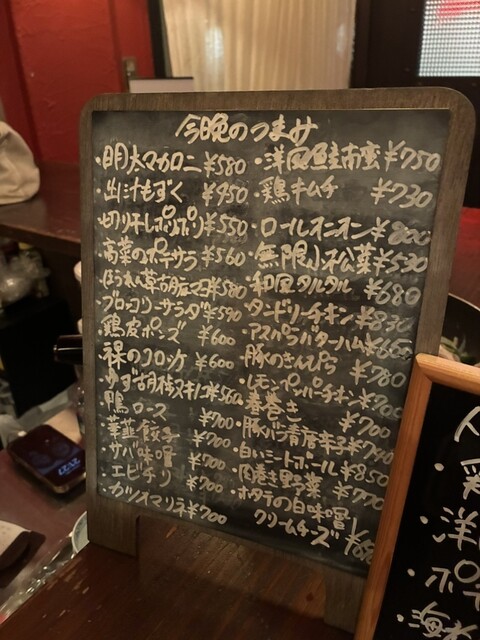 今晩のつまみ
・明太マカロニ ¥580
・出汁もずく ¥450
切り干しポリポリ ¥550
高菜のポテサラ ¥560
ほうれん草胡麻 ¥580
ブロッコリーサラダ ¥590
鶏皮ポンズ ¥600
裸のコロッケ ¥600
ゆず胡椒 ¥560
鴨ロース ¥700
華韮餃子 ¥700
サバ味噌 ¥700
エビチリ ¥700
カツオマリネ ¥700
・洋風 ¥750
・鶏キムチ ¥730
・ロールオニオン ¥800
・無限小松菜 ¥530
・和風タルタル ¥680
・タンドリーチキン ¥830
・アスパラバターハム
・豚のきんぴら ¥780
・レモンペッパーチキン
・春巻き ¥700
・豚バラ青唐辛子
・白いミートボール ¥850
・肉巻き野菜
・ホタテの白味噌
クリームチーズ
洋
・ポテ
・海